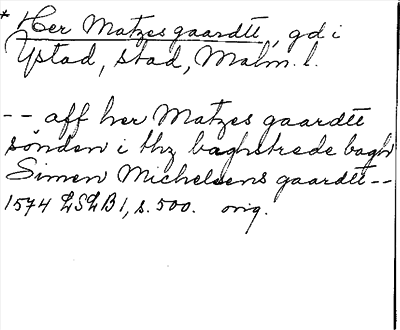 * Her Matzes gaardtt, gd i
Ystad, stad, Malm. l.
-- aff her Matzes gaardtt
sønden i thz baghstrede bagh
Simen Michelsens gaardtt --
1574 LSLB 1, s. 500. orig.